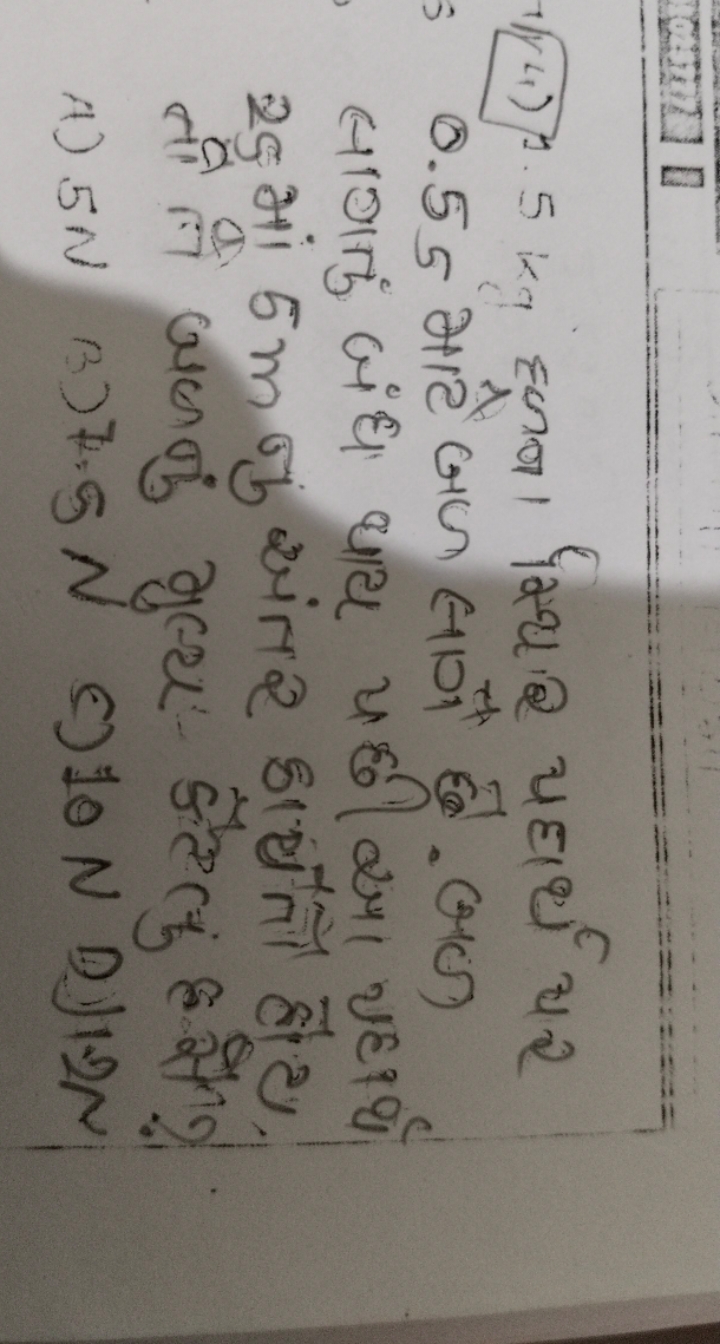 4) 1.5 kg દળના સ્થિર પદાર્થ પર
0.5 s માટે બળ લાગે છે. બળ
લાગતું બંધ થાય પછી આ પદાર્થ
2s માં 5m નું અંતર કાપેતો હોય
તો તે બળનું મુલ્ય કેટલું હશે?
A) 5N B) 7.5 N C) 10 N D) 1.2N